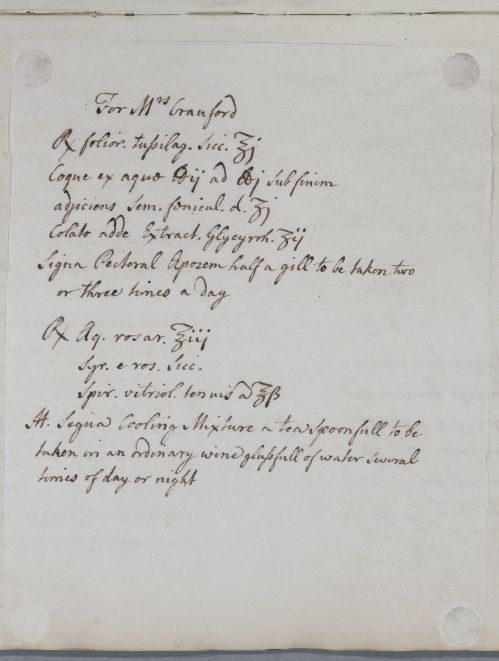 For Mrs Crauford
℞ folior. tußilag. sicc. ℥j
Coque ex aquæ ℔ij ad ℔j sub finem
adjiciens sem. fœnicul. d. ʒj
Colato adde Extract. Glycyrrh. ʒij
Signa Pectoral Apozem half a gill to be taken two
or three times a day
℞ Aq. rosar. ℥iij
Syr. e ros. sicc.
Spir. vitriol. tenuis a ℥ß
M. Signa Cooling Mixture a tea spoonfull to be
taken in an ordinary wine glaßfull of water several
times of day or night